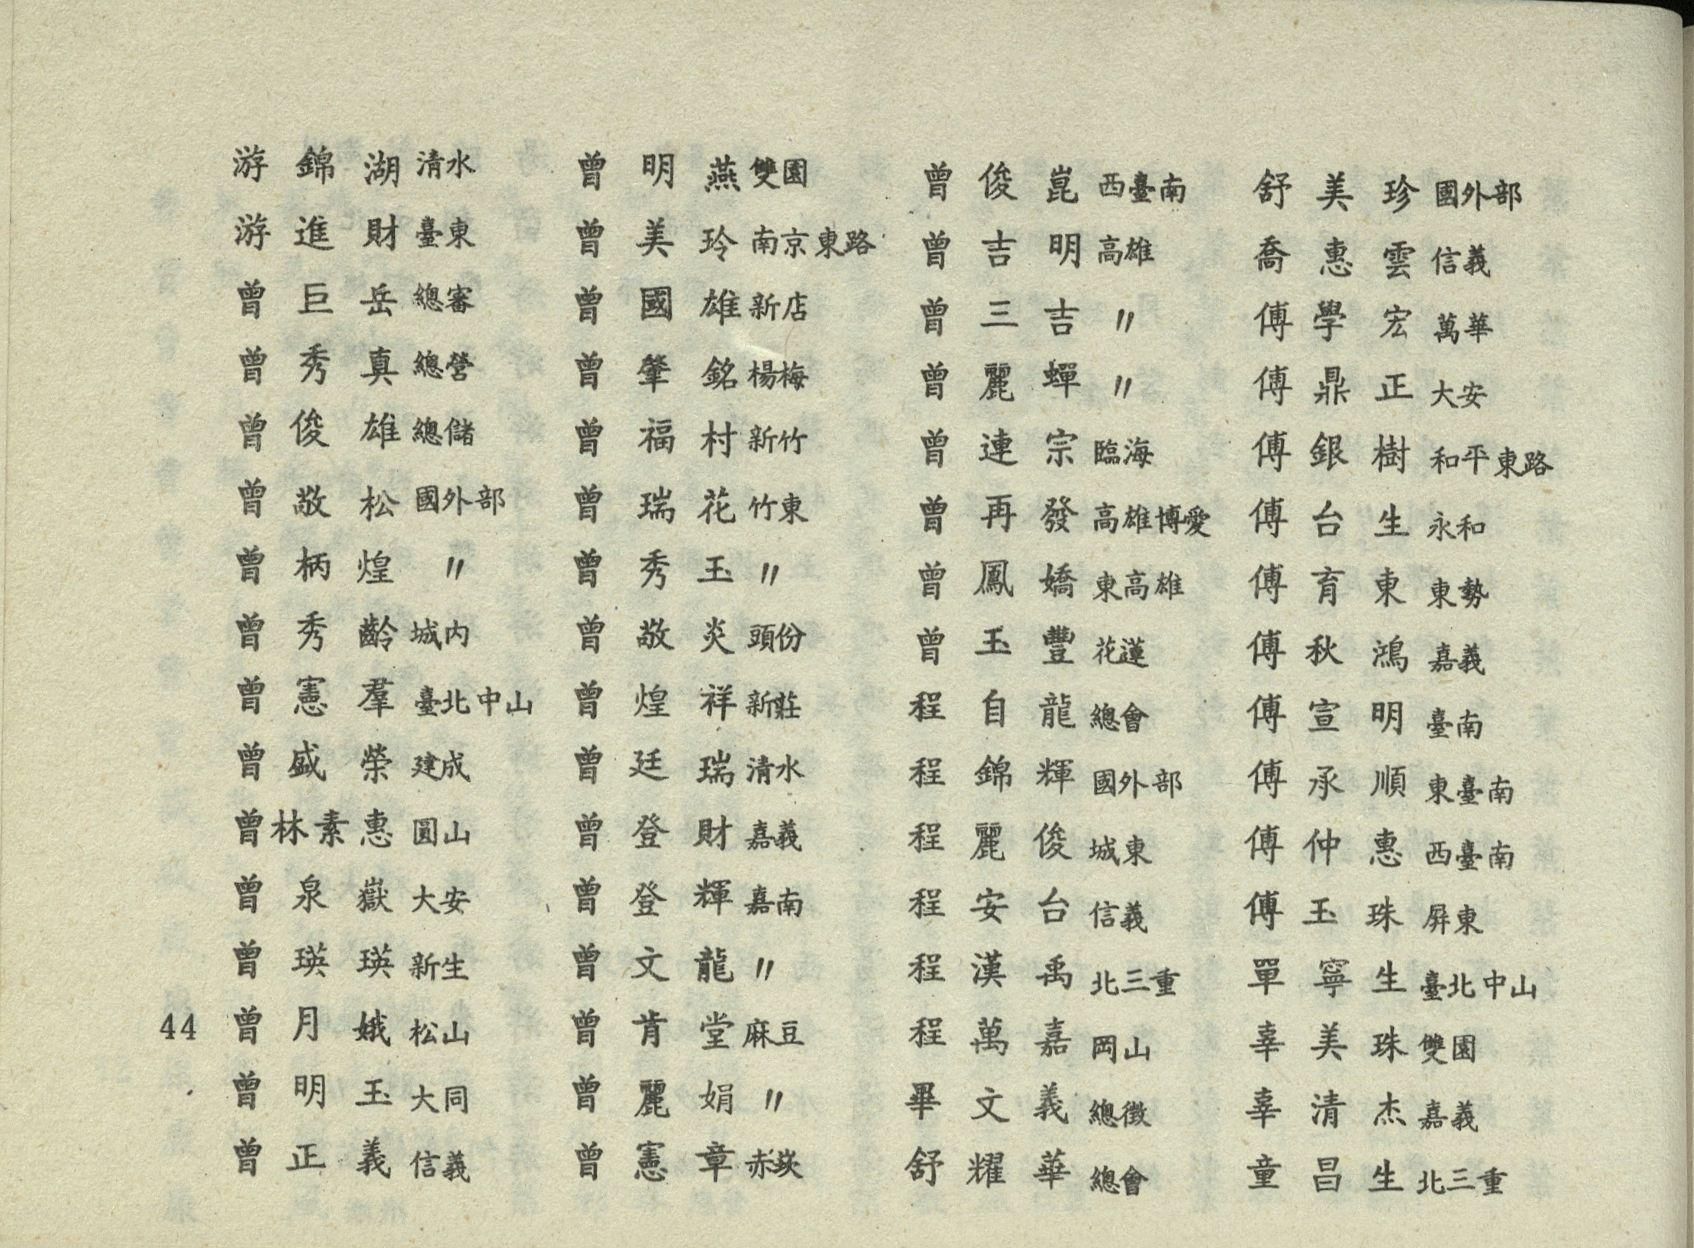 游錦湖 清水
游進財 臺東
曾巨岳 總審
曾秀真 總營
曾俊雄 總儲
曾敬松 國外部
曾柄煌 〃
曾秀齡 城內
曾憲羣 臺北中山
曾盛榮 建成
曾林素惠 圓山
曾泉嶽 大安
曾瑛瑛 新生
曾月娥 松山
曾明玉 大同
曾正義 信義
曾明燕 雙園
曾美玲 南京東路
曾國雄 新店
曾肇銘 楊梅
曾福村 新竹
曾瑞花 竹東
曾秀玉 〃
曾敬炎 頭份
曾煌祥 新莊
曾廷瑞 清水
曾登財 嘉義
曾登輝 嘉南
曾文龍 〃
曾肯堂 麻豆
曾麗娟 〃
曾憲章 赤崁
曾俊崑 西臺南
曾吉明 高雄
曾三吉 〃
曾麗蟬 〃
曾連宗 臨海
曾再發 高雄博愛
曾鳳嬌 東高雄
曾玉豐 花蓮
程自龍 總會
程錦輝 國外部
程麗俊 城東
程安台 信義
程漢禹 北三重
程萬嘉 岡山
畢文義 總徵
舒耀華 總會
舒美珍 國外部
喬惠雲 信義
傅學宏 萬華
傅鼎正 大安
傅銀樹 和平東路
傅台生 永和
傅育東 東勢
傅秋鴻 嘉義
傅宣明 臺南
傅承順 東臺南
傅仲惠 西臺南
傅玉珠 屏東
單寧生 臺北中山
辜美珠 雙園
辜清杰 嘉義
童昌生 北三重
44